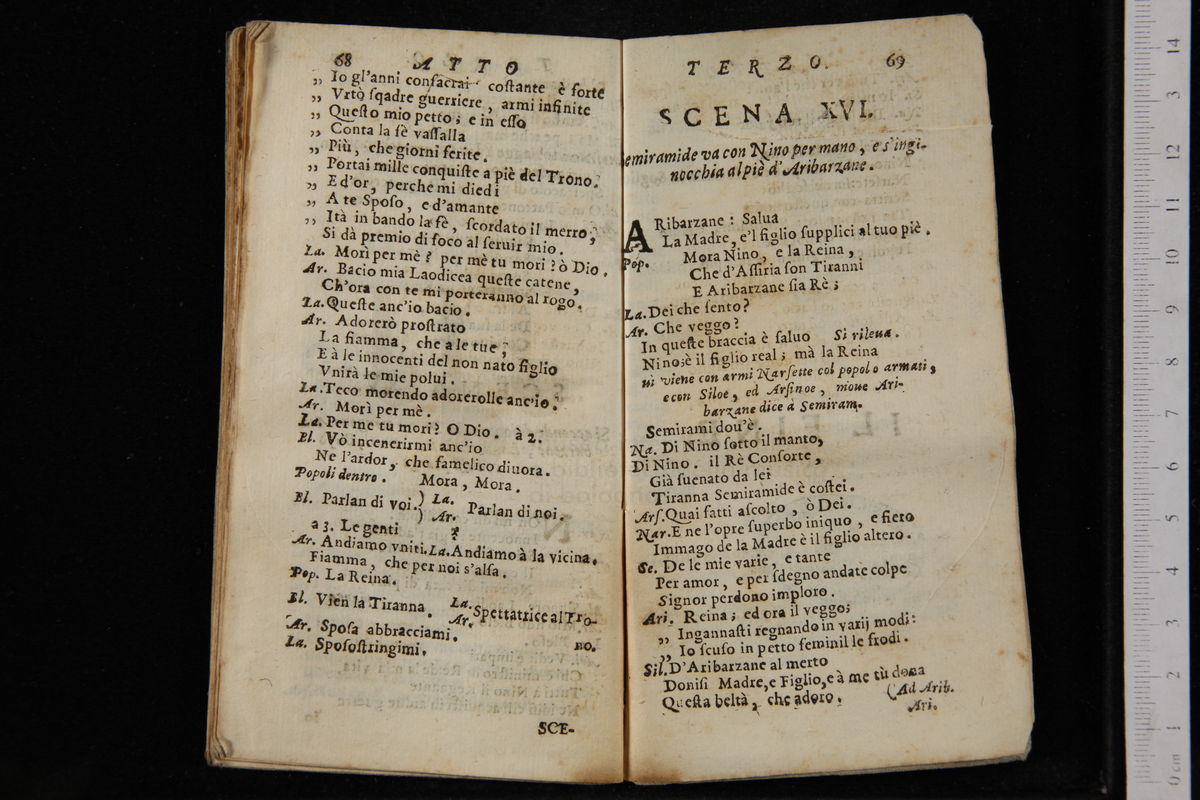 68 ATTO
„ Io gl'anni consacrai costante è forte
„ Vrtò sqadre guerriere, armi infinite
„ Questo mio petto; e in esso
„ Conta la fè vassalla
„ Più, che giorni ferite.
„ Portai mille conquiste a piè del Trono.
„ Ed'or, perche mi diedi
„ A te Sposo, e d'amante
„ Ità in bando la fè, scordato il merro;
Si dà premio di foco al seruir mio.
La. Morì per mè? per mè tu mori? ò Dio.
Ar. Bacio mia Laodicea queste catene,
Ch'ora con te mi porteranno al rogo.
La. Queste anc'io bacio.
Ar. Adorerò prostrato
La fiamma, che a le tue;
E à le innocenti del non nato figlio
Vnirà le mie polui.
La. Teco morendo adorerolle anc'io.
Ar. Morì per mè.
La. Per me tu mori? O Dio. à 2.
El. Vò incenerirmi anc'io
Ne l'ardor, che famelico diuora.
Popoli dentro. Mora, Mora.
El. Parlan di voi.) La.
) Ar. Parlan di noi.
a 3. Le genti
Ar. Andiamo vniti. La. Andiamo à la vicina.
Fiamma, che per noi s'alsa.
Pop. La Reina.
El. Vien la Tiranna. La.
Ar. Spettatrice al Tro-
no.
Ar. Sposa abbracciami.
La. Sposo stringimi.
SCE-
TERZO. 69
SCENA XVI.
Semiramide va con Nino per mano, e s'ingi-
nocchia al piè d'Aribarzane.
ARibarzane: Salua
La Madre, e'l figlio supplici al tuo piè.
Pop. Mora Nino, e la Reina,
Che d'Assiria son Tiranni
E Aribarzane sia Rè;
La. Dei che sento?
Ar. Che veggo?
In queste braccia è saluo Si rileua.
Nino; è il figlio real; mà la Reina
ui viene con armi Narsette col popolo armati,
e con Siloe, ed Arsinoe, moue Ari-
barzane dice à Semiram.
Semirami dou'è.
Na. Di Nino sotto il manto,
Di Nino. il Rè Consorte,
Già suenato da lei
Tiranna Semiramide è costei.
Ars. Quai fatti ascolto, ò Dei.
Nar. E ne l'opre superbo iniquo, e fiero
Immago de la Madre è il figlio altero.
Se. De le mie varie, e tante
Per amor, e per sdegno andate colpe
Signor perdono imploro.
Ari. Reina; ed ora il veggo;
„ Ingannasti regnando in varij modi:
„ Io scuso in petto feminil le frodi.
Sil. D'Aribarzane al merto
Donisi Madre, e Figlio, e à me tù dona
Questa beltà, che adoro. (Ad Arib.
Ari.